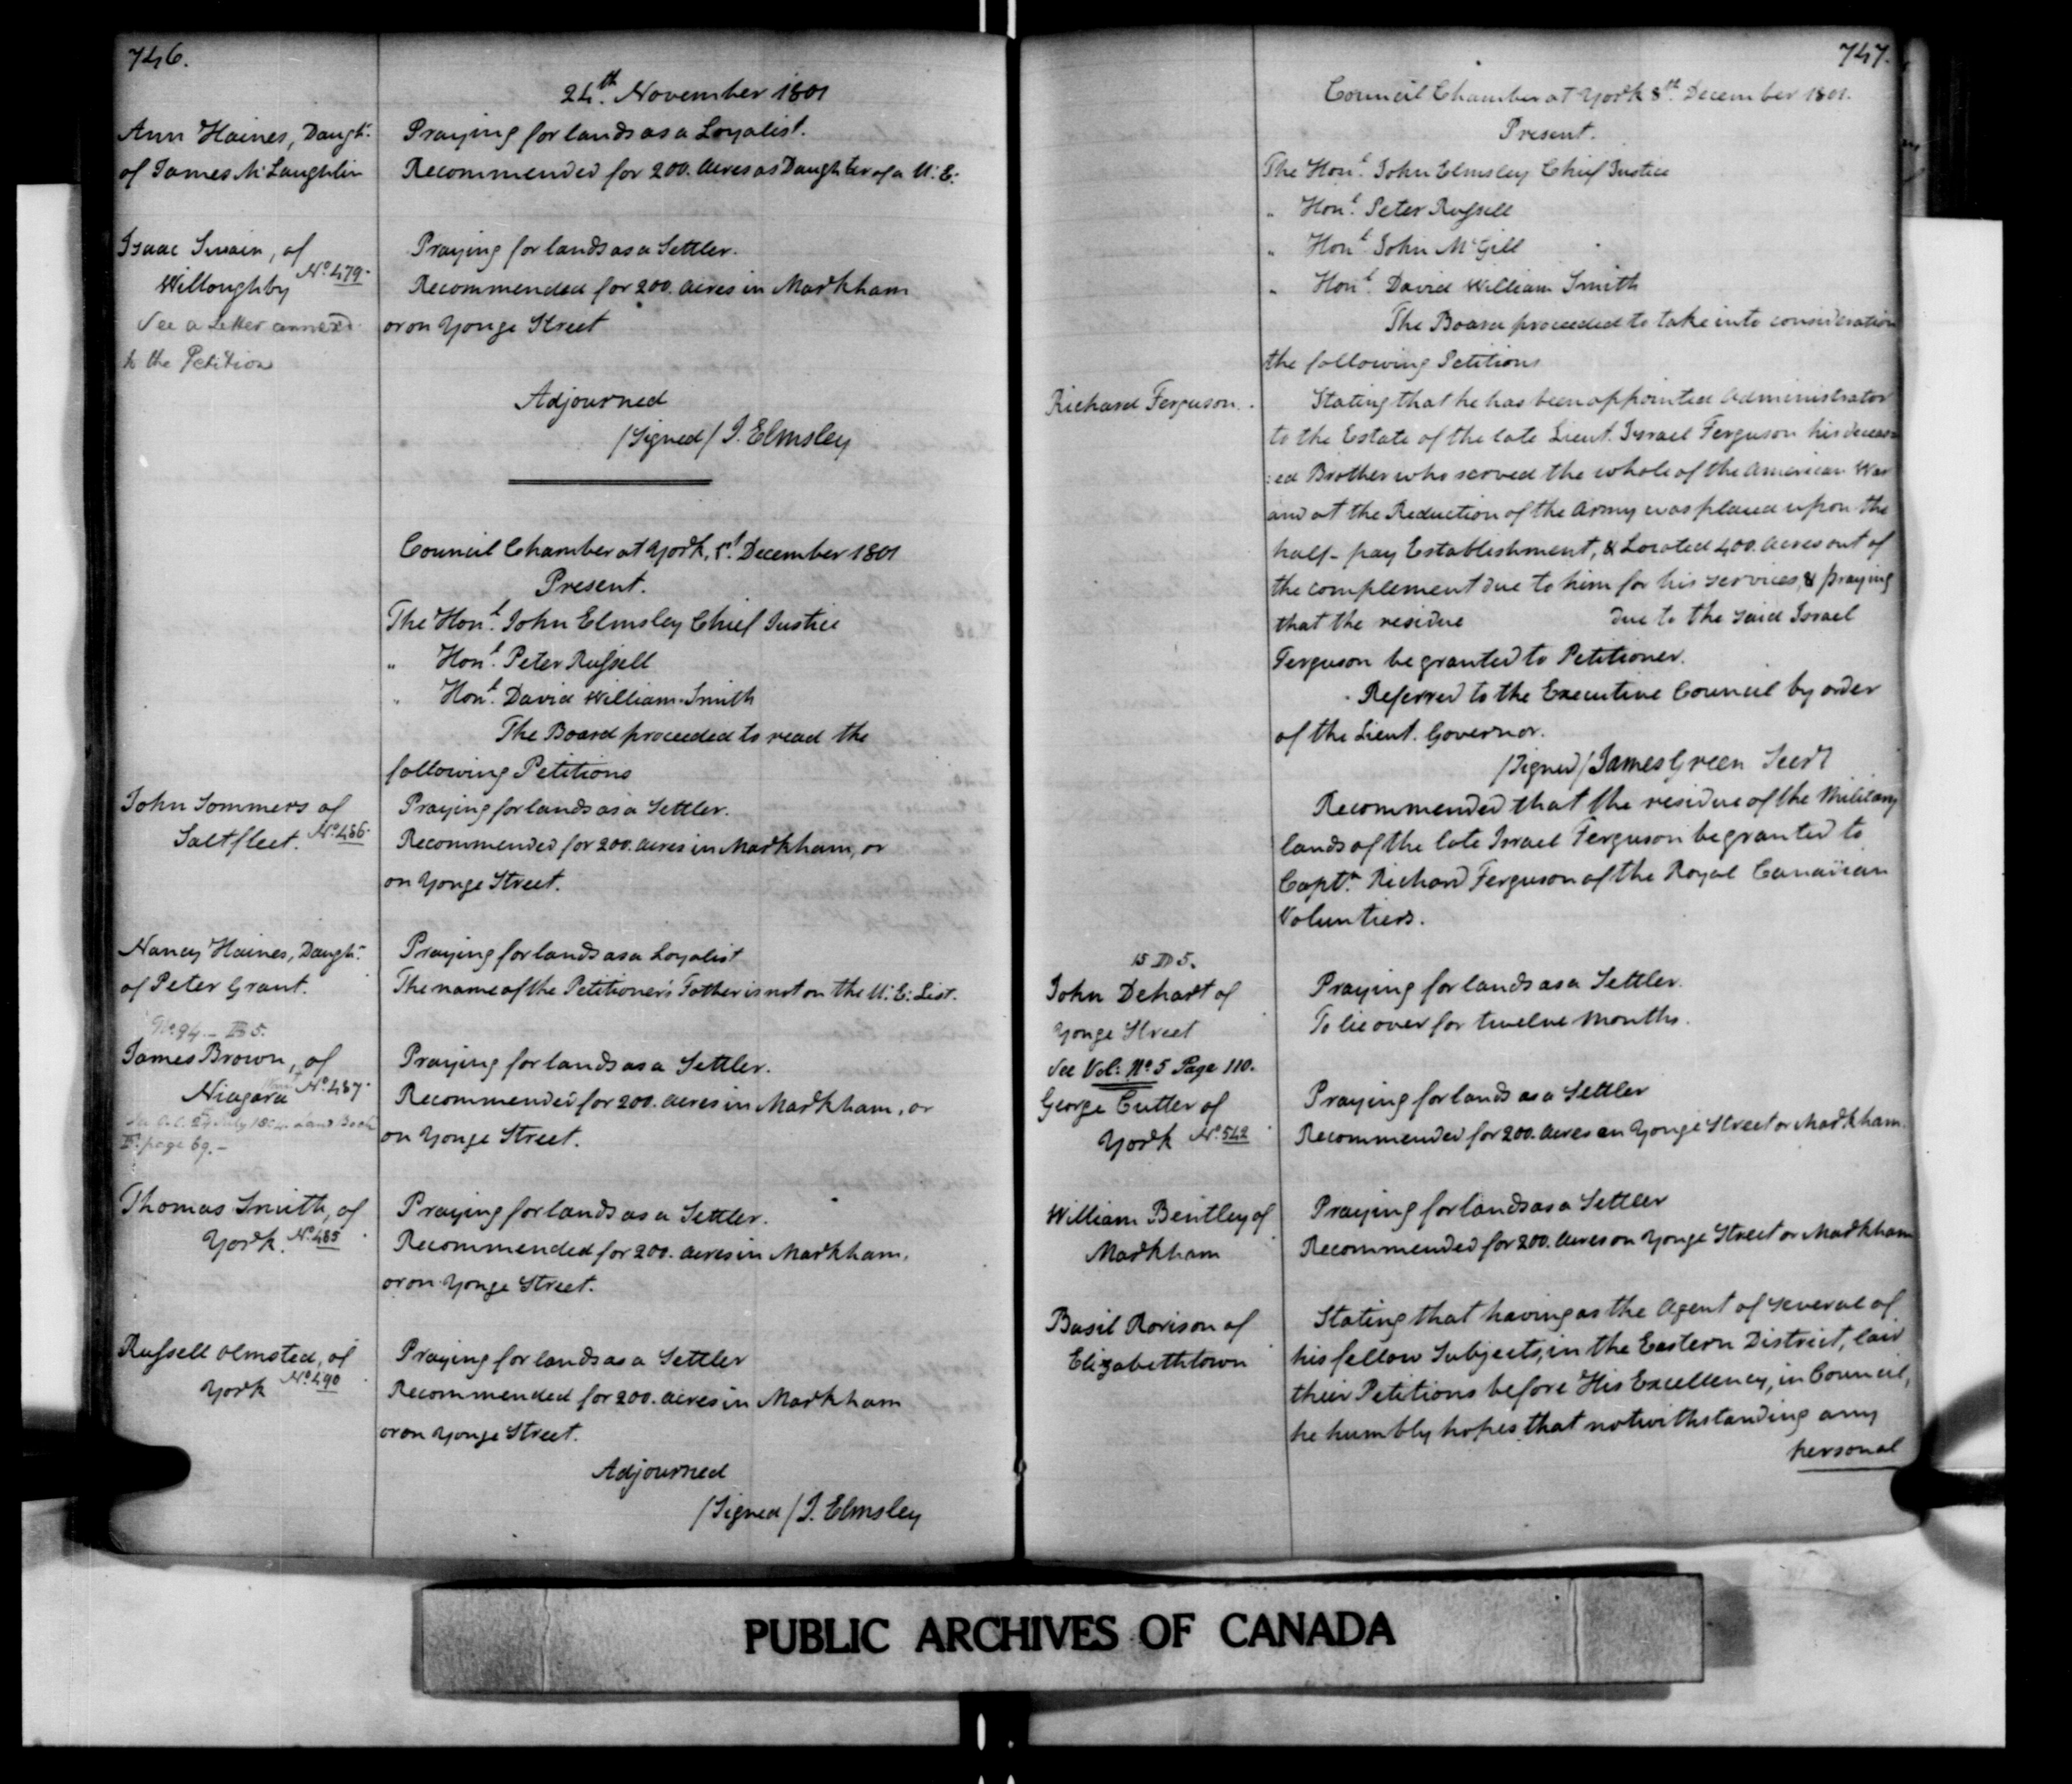 746.
24.th November 1801
Ann Haines, Daughr.
of James McLaughlin
Praying for lands as a Loyalist.
Recommended for 200. Acres as Daughter of a U: E:
Isaac Swain, of
Willoughby No. 479.
See a Letter annexed
to the Petition
Praying for lands as a Settler.
Recommended for 200. acres in Markham
or on Yonge Street
Adjourned
/Signed/ J. Elmsley
Council Chamber at York, 1st December 1801
Present.
The Honl. John Elmsley Chief Justice
" Honl. Peter Russell
" Honl. David William Smith
The Board proceeded to read the
following Petitions
John Sommers of
Saltfleet. No. 486.
Praying for lands as a Settler.
Recommended for 200. acres in Markham, or
on Yonge Street.
Nancy Haines, Daughr.
of Peter Grant.
Praying for lands as a Loyalist
The name of the Petitioner's Father is not on the U: E: List.
No. 94 - B 5.
James Brown, of
Niagara No. 487.
See O.C. 27 July 1804 Land Book
page 69. -
Praying for lands as a Settler.
Recommended for 200. acres in Markham, or
on Yonge Street.
Thomas Smith, of
York. No. 485
Praying for lands as a Settler.
Recommended for 200. acres in Markham,
or on Yonge Street.
Russell Olmsted, of
York No. 490
Praying for lands as a Settler
Recommended for 200. acres in Markham
or on Yonge Street.
Adjourned
/Signed/ J. Elmsley
747.
Council Chamber at York 8th. December 1801.
Present.
The Honl. John Elmsley Chief Justice
" Honl. Peter Russell
" Honl. John McGill
" Honl. David William Smith
The Board proceeded to take into consideration
the following Petitions
Richard Ferguson.
Stating that he has been appointed Administrator
to the Estate of the late Lieut. Israel Ferguson his deceas
:ed Brother who served the whole of the American War
and at the Reduction of the Army was placed upon the
half-pay Establishment, & Located 400. acres out of
the complement due to him for his services, & praying
that the residue due to the said Israel
Ferguson be granted to Petitioner.
Referred to the Executive Council by order
of the Lieut. Governor.
/Signed/ James Green Secry
Recommended that the residue of the Military
lands of the late Israel Ferguson be granted to
Captn. Richard Ferguson of the Royal Canadian
Voluntiers.
15 D 5.
John Dehart of
Yonge Street
See Vol: No. 5 Page 110.
Praying for lands as a Settler.
To lie over for twelve months.
George Cutler of
York No. 542
Praying for lands as a Settler
Recommended for 200. acres on Yonge Street or Markham.
William Bentley of
Markham
Praying for lands as a Settler
Recommended for 200. acres on Yonge Street or Markham
Basil Rorison of
Elizabethtown
Stating that having as the Agent of several of
his fellow Subjects, in the Eastern District, laid
their Petitions before His Excellency, in Council,
he humbly hopes that notwithstanding any
personal
PUBLIC ARCHIVES OF CANADA